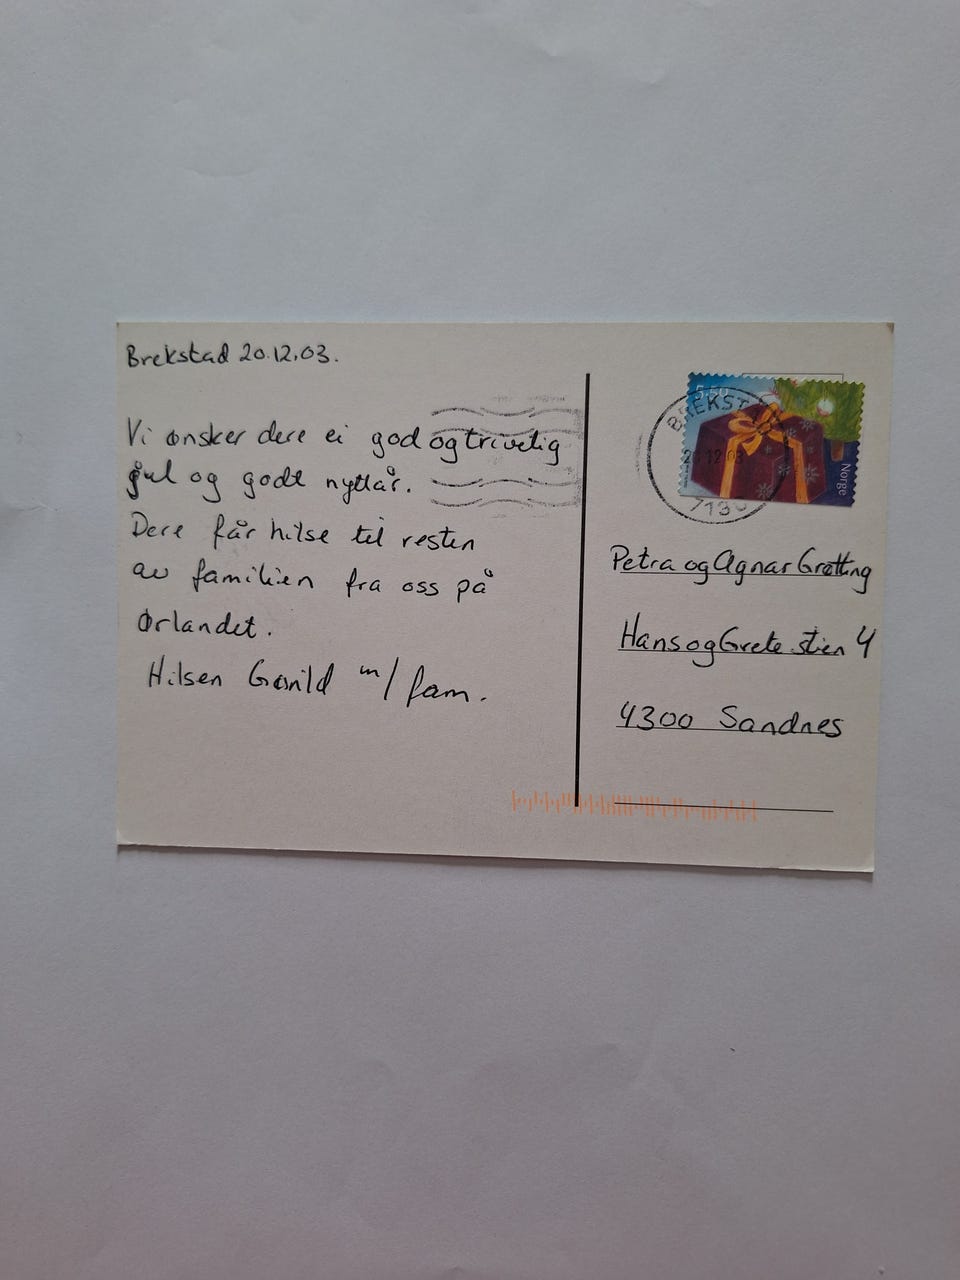 Brekstad 20.12.03.
Vi ønsker dere ei god og trivelig
jul og godt nyttår.
Dere får hilse til resten
av familien fra oss på
Ørlandet.
Hilsen Gunild m/fam.
5,50
Norge
BREKSTAD
20.12.03
7130
Petra og Agnar Grøtting
Hans og Grete stien 4
4300 Sandnes